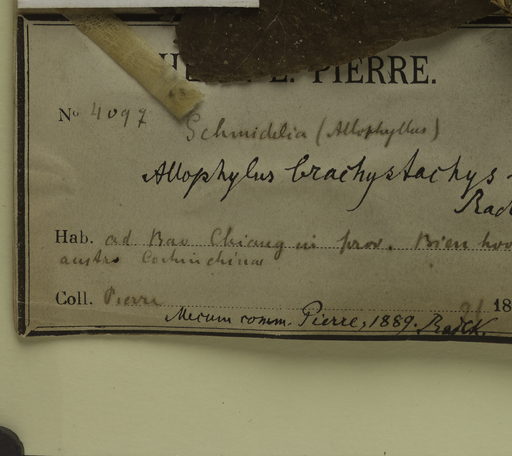 L. PIERRE.
No 4097
Schmidelia (Allophyllus)
Allophylus brachystachys
Radl
Hab. ad Bao Chiang in prov. Bien hoa
austro Cochinchinae
Coll. Pierre 18
Mecum comm. Pierre, 1889. Radlk.